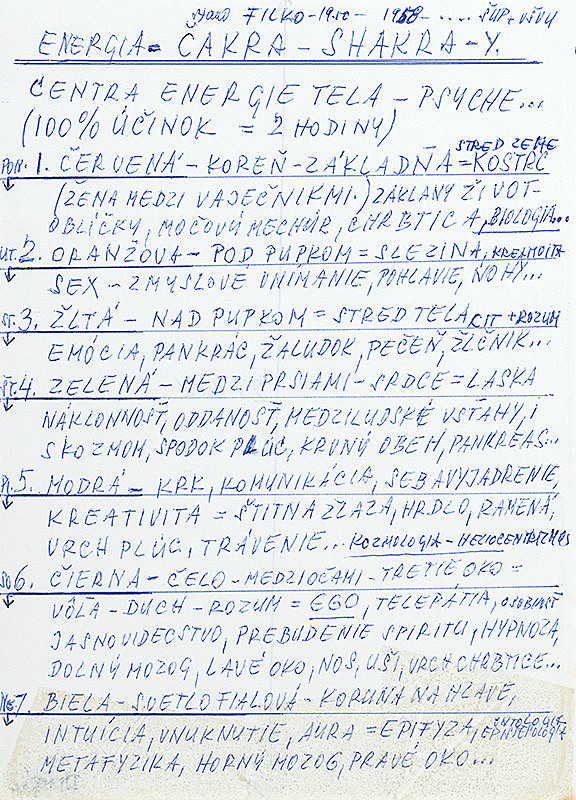 FILKO - 1950 - 1958 - ....
ENERGIA = CAKRA - SHAKRA - Y.
CENTRA ENERGIE TELA - PSYCHE...
(100% ÚČINOK = 2 HODINY)
STRED ZEME
PON. 1. ČERVENÁ - KOREŇ - ZÁKLADŇA = KOSTRČ
(ŽENA MEDZI VAJEČNIKMI.) ZÁKLANY ŽIVOT-
OBLIČKY, MOČOVÝ MECHÚR, CHRBTICA, BIOLOGIA...
UT. 2. ORANŽOVA - POD PUPKOM = SLEZINA,
SEX - ZMYSLOVÉ VNIMANIE, POHLAVIE, NOHY...
ST. 3. ŽLTÁ - NAD PUPKOM = STRED TELA, CIT + ROZUM
EMÓCIA, PANKRÁC, ŽALUDOK, PEČEŇ, ŽLČNIK...
ŠT. 4. ZELENÁ - MEDZI PRSIAMI - SRDCE = LASKA
NÁKLONNOSŤ, ODDANOSŤ, MEDZILUDSKÉ VSŤAHY, I
S KOZMOM, SPODOK PLÚC, KRVNÝ OBEH, PANKREAS...
PI. 5. MODRÁ - KRK, KOMUNIKÁCIA, SEBAVYJADRENIE,
KREATIVITA = ŠTITNA ZLAZA, HRDLO, RAMENÁ,
VRCH PLÚC, TRÁVENIE... KOZMOLOGIA - HELIOCENTRIZMUS
SO 6. ČIERNA - ČELO - MEDZIOČAMI - TRETIE OKO =
VÔĽA - DUCH - ROZUM = EGO, TELEPATIA, OSOBNOSŤ
JASNOVIDECSTVO, PREBUDENIE SPIRITU, HYPNOZA,
DOLNÝ MOZOG, LAVÉ OKO, NOS, UŠI, VRCH CHRBTICE...
NE. 7. BIELA - SVETLOFIALOVÁ - KORUNA NA HLAVE,
INTUÍCIA, VNUKNUTIE, AURA = EPIFYZA, ONTOLOGIE
METAFYZIKA, HORNÝ MOZOG, PRAVÉ OKO...